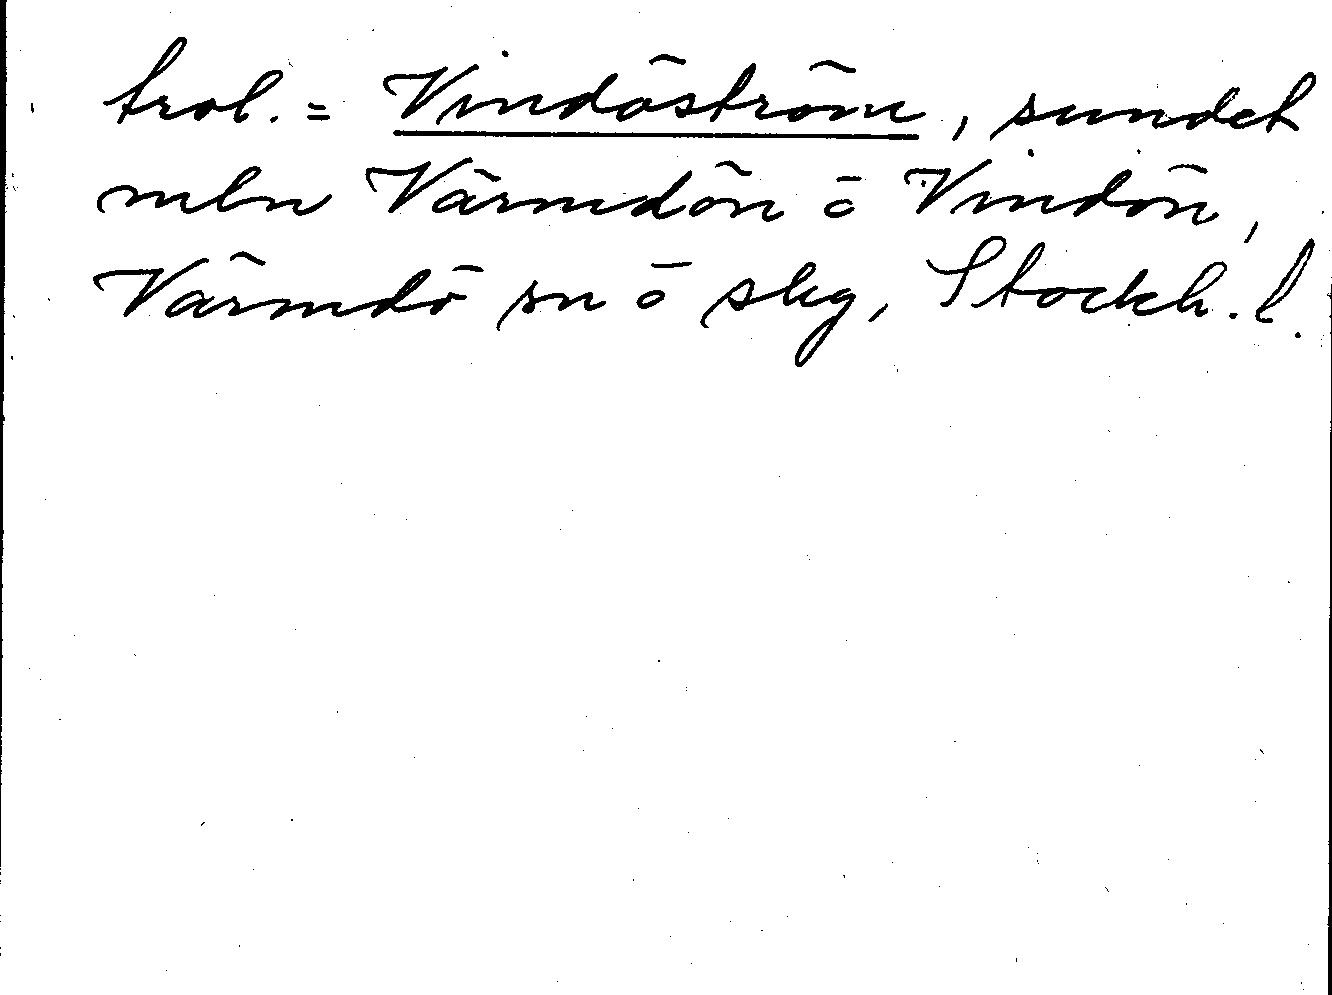 trol. = Vindöström, sundet
mln Värmdön o Vindön,
Värmdö sn o skg, Stockh. l.